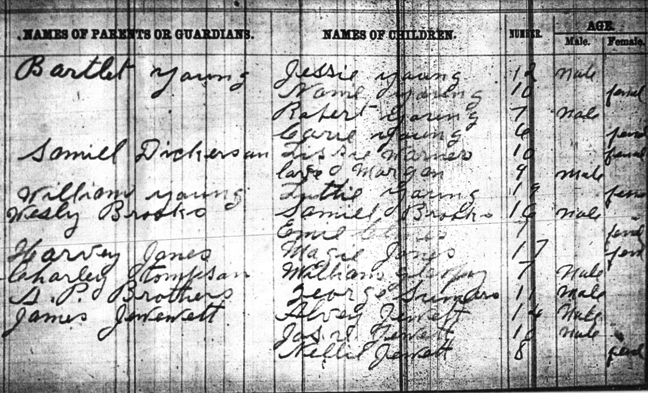 NAMES OF PARENTS OR GUARDIANS. NAMES OF CHILDREN. NUMBER. AGE.
Male. Female.
Bartlet Young Jessie Young 12 Male
Young 10 femel
Robert Young 7 Male
Carrie Young 6 femel
Samiel Dickerson Lissie Warner 10 femel
Morgan 9 Male
William Young Young 19 feme
Wesly Brooks Samiel Brooks 16 Male
femel
Harvey Jones Magie Jones 17 feme
Charley William 7 Male
Brothers George 11 Male
James Jewett 14 Male
Jewett 10 Male
Nellie Jewett 8 femel